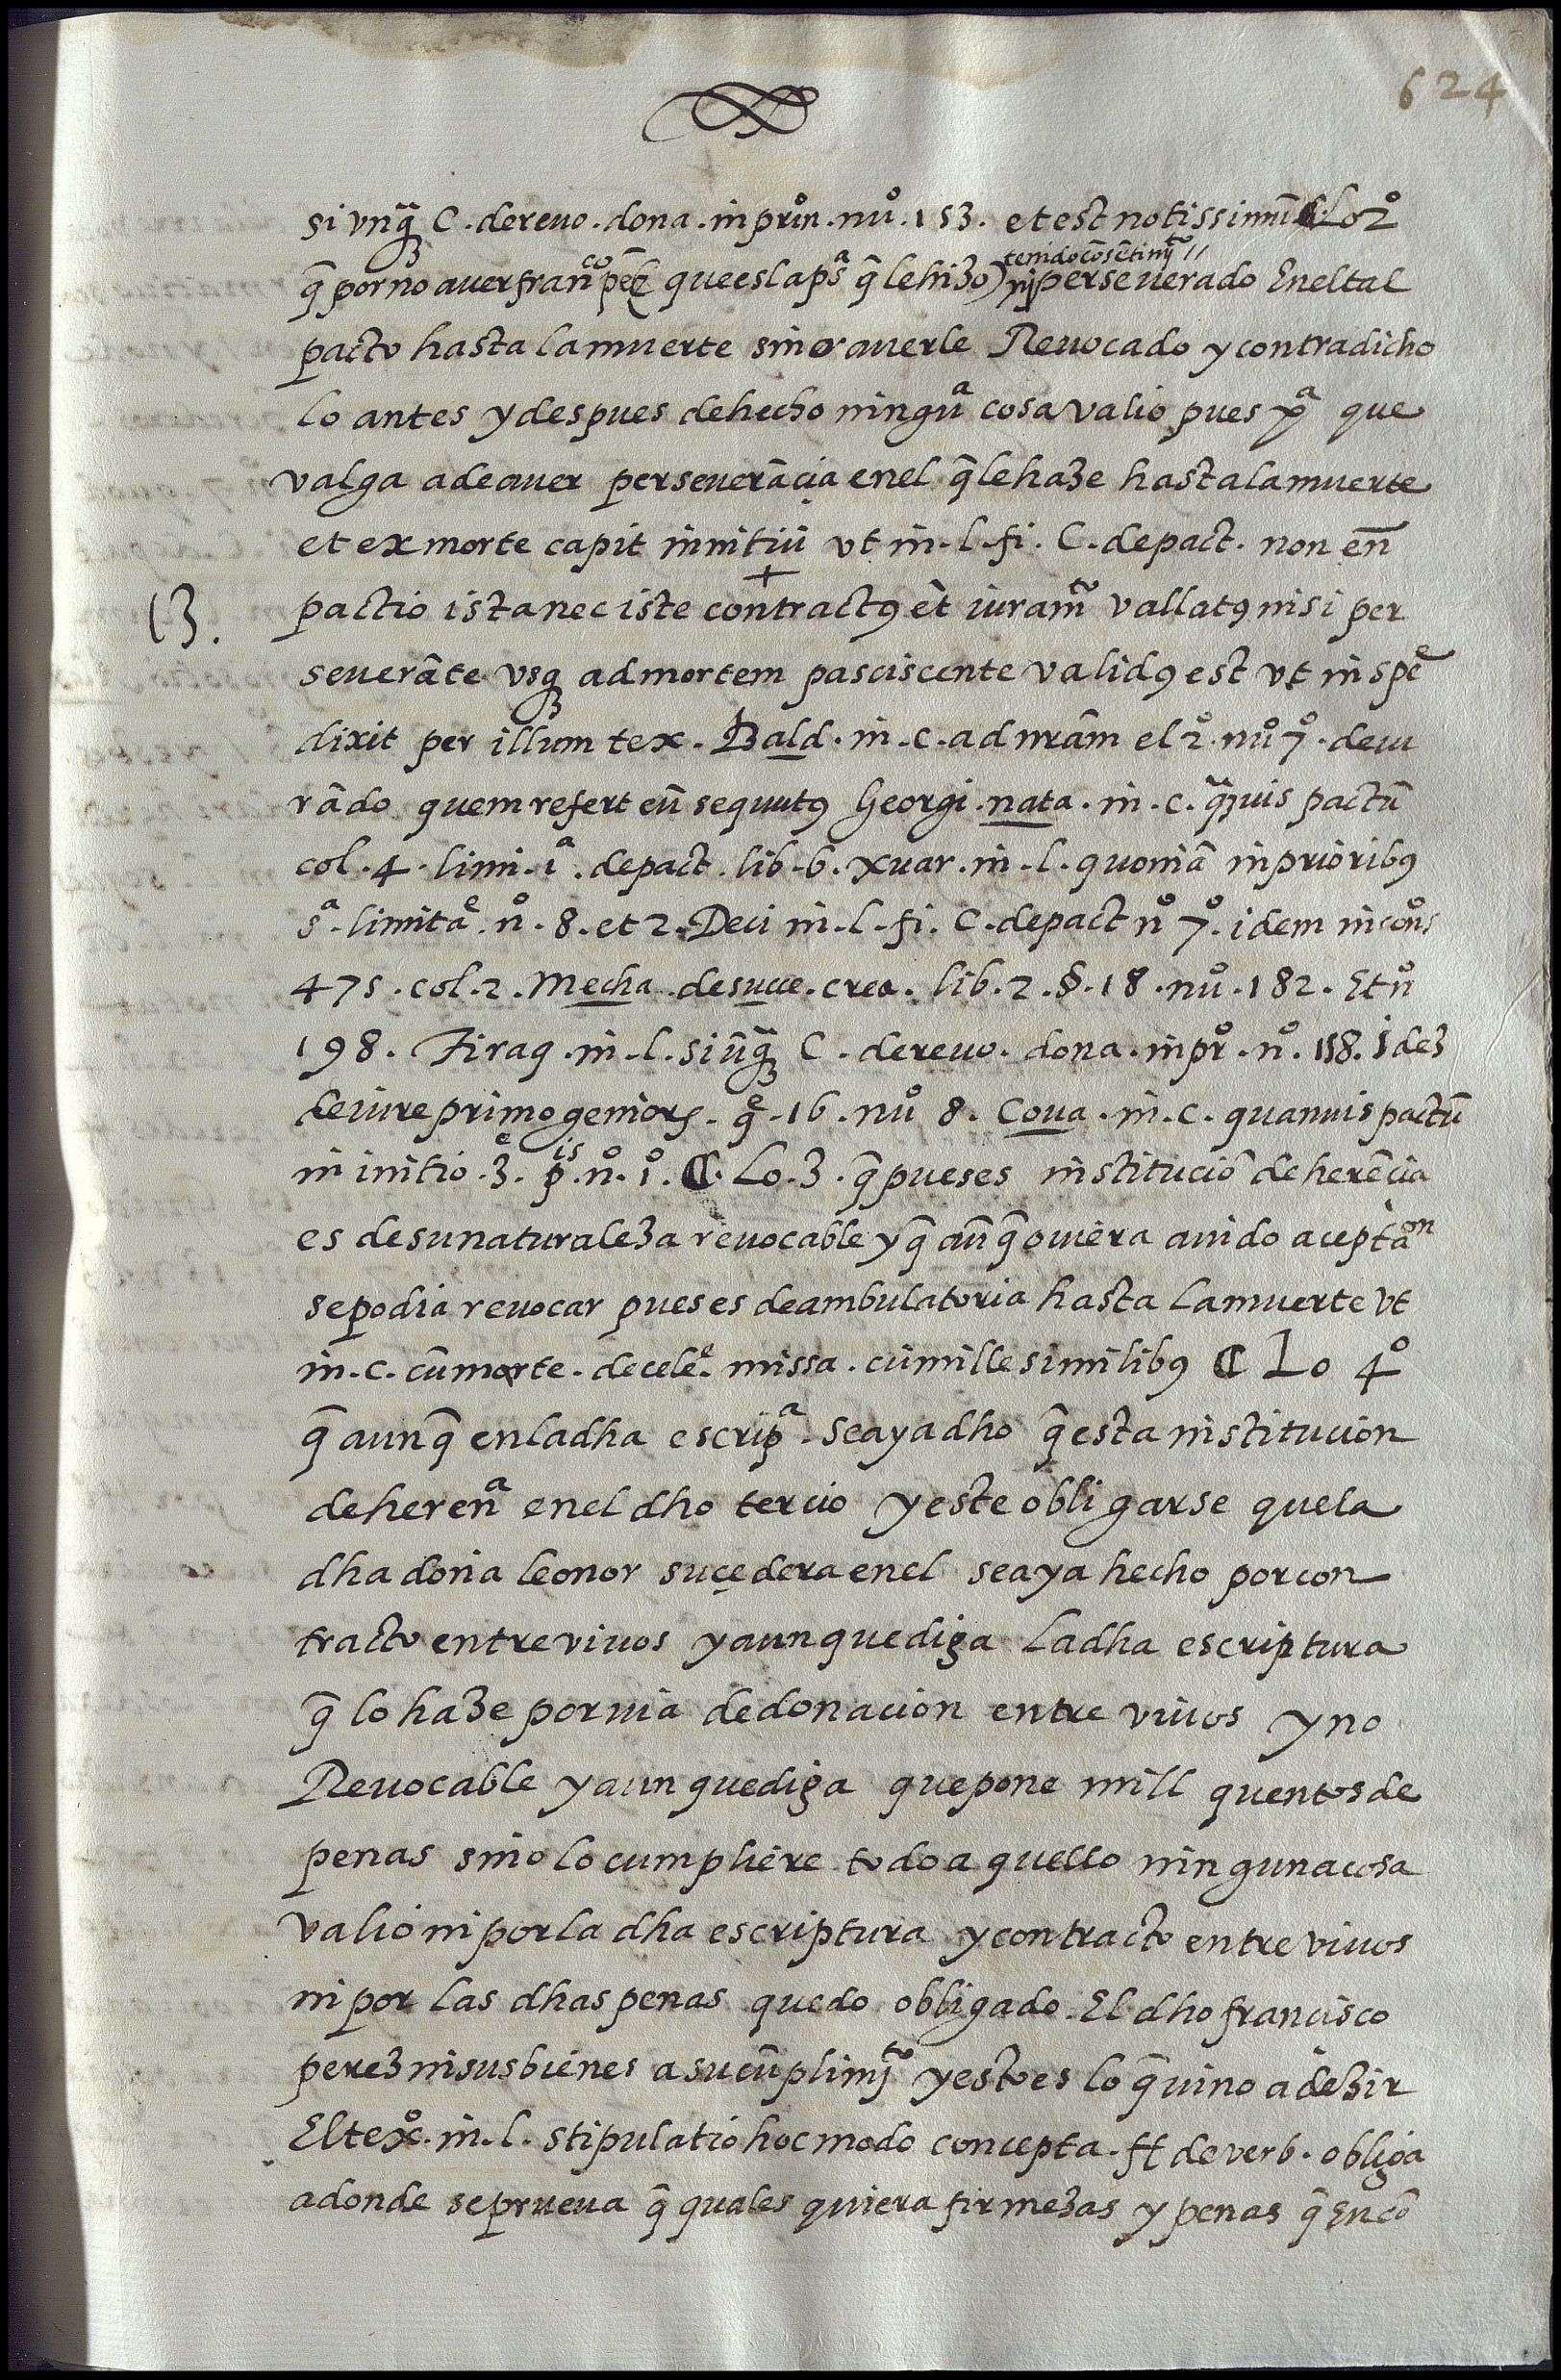 624
si vnq̃ȝ C. de reuo. dona. in prin̊. nů. 153. et est notissimũ ⁋. Lo 2º
tenido cõsẽtimj̃to //
q̃ por no auer franco pez (que es la psa q̃ le hizo) nj perseuerado En el tal
pacto hasta la muerte sino auerle Reuocado y contradicho
lo antes y despues de hecho ningua cosa valio pues pa que
valga a de auer perseuerãcia en el q̃ le haze hasta la muerte
et ex morte capit innitiũ vt in. l. fi. C. de pact. non eñ
13. pactio ista nec iste contractꝰ et̃ iuramto vallatꝰ nisi per
seuerãte vsqȝ ad mortem pasciscente validꝰ est vt in spe
dixit per illum tex. Bald. in. c. ad nrãm el 2º nuº 7º. de iu
rãdo quem refert eũ sequutꝰ Georgi. nata. in. c. q̃uis pactũ
col. 4. limi. 1a. de pact. lib. 6. xuar. in. l. quoniã in prioribꝰ
sa. limitae. nº. 8. et 2. Deci in. l. fi. C. de pact nº 7º. idem in cons
475. col. 2. Mecha. de succe. crea. lib. 2. §. 18. nuº. 182. Et nº
198. Tiraq. in. l. si ũq̃ȝ C. de reuo. dona. in prº. nº. 158. ideȝ
de iure primogenioꝝ. qe. 16. nuº 8. Coua. in. c. quanuis pactũ
in initio. 3e. pis. nº. 1º. ⁋. Lo. 3. q̃ pues es instituciõ de herẽcia
es de su naturaleza reuocable y q̃ aũq̃ ouiera auido aceptaon
se podia reuocar pues es deambulatoria hasta la muerte vt
in. c. cũ marte. de celee. missa. cũ mille similibꝰ ⁋ Lo 4º
q̃ aunq̃ en la dha escripa. se aya dho q̃ esta institucion
de herena en el dho tercio y este obligarse que la
dha doña leonor suçedera en el se aya hecho por con
tracto entre viuos y aunque diga La dha escriptura
q̃ lo haze por via de donacion entre viuos y no
Reuocable y aunque diga que pone mill quentos de
penas sino lo cumpliere todo aquello ninguna cosa
valio ni por la dha escriptura y contracto entre viuos
ni por las dhas penas quedo obligado. El dho francisco
perez ni sus bienes a su cũplimjto y esto es lo q̃ vino a dezir
El texº. in. l. stipulatio hoc modo concepta. ff de verb. obliga
adonde se prueua q̃ quales quiera firmezas y penas q̃ En cõ